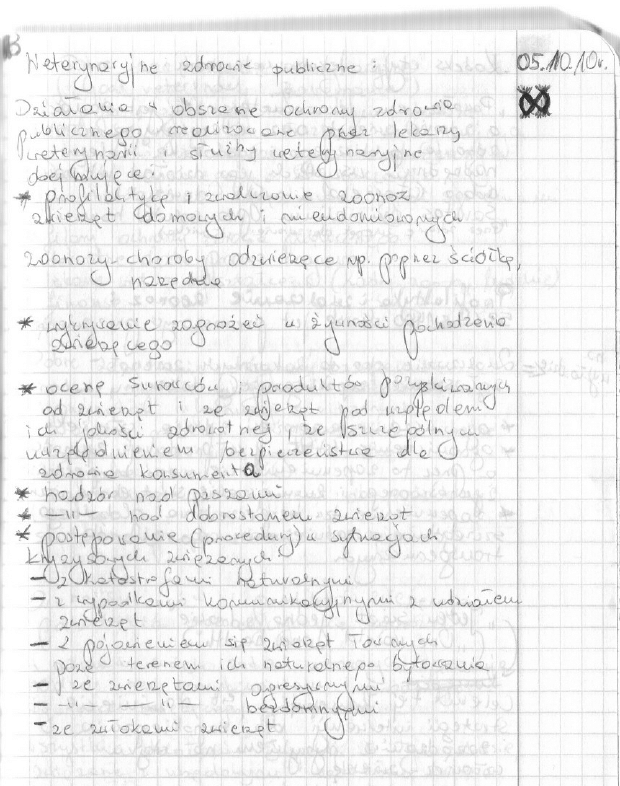 Weterynaryjne zdrowie publiczne : 05.10.10r.
Działania w obszarze ochrony zdrowia
publicznego realizowane przez lekarzy
weterynarii i służby weterynaryjne
obejmujące:
* profilaktykę i zwalczanie zoonoz
zwierząt domowych i nieudomowionych
zoonozy choroby odzwierzęce np. poprzez ściółkę,
narzędzia
* wykrywanie zagrożeń w żywności pochodzenia
zwierzęcego
* ocenę surowców i produktów pozyskiwanych
od zwierząt i ze zwierząt pod względem
ich jakości zdrowotnej, ze szczególnym
uwzględnieniem bezpieczeństwa dla
zdrowia konsumenta
* nadzór nad paszami
* —||— nad dobrostanem zwierząt
* postępowanie (procedury) w sytuacjach
kryzysowych związanych:
– z katastrofami naturalnymi
– z wypadkami komunikacyjnymi z udziałem
zwierząt
– z pojawieniem się zwierząt łownych
poza terenem ich naturalnego bytowania
– ze zwierzętami agresywnymi
– —||— —||— bezdomnymi
– ze zwłokami zwierząt